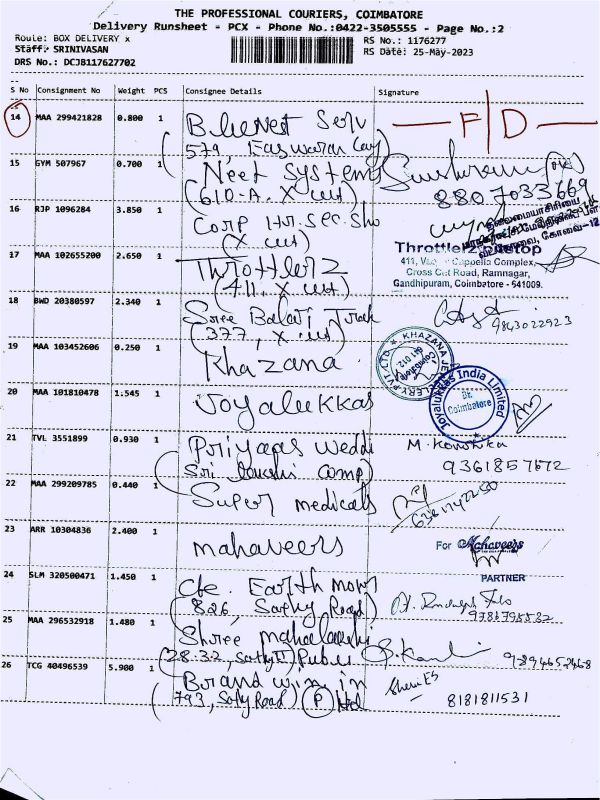 THE PROFESSIONAL COURIERS, COIMBATORE
Delivery Runsheet - PCX - Phone No.:0422-3505555 - Page No.:2
Route: BOX DELIVERY x
RS No.: 1176277
Staff: SRINIVASAN
RS Date: 25-May-2023
DRS No.: DCJB117627702
S No Consignment No Weight PCS Consignee Details Signature
14 MAA 299421828 0.800 1 Serv F/D
579, Easwaran
15 GYM 507967 0.700 1 Neet Systems
(610-A, X cut) 8807033669
16 RJP 1096284 3.850 1 Corp Hr. Sec. Sho
(X cut)
17 MAA 102655200 2.650 1 Throttlerz
(411, X cut)
Throttlerz
411, Complex,
Cross Cut Road, Ramnagar,
Gandhipuram, Coimbatore - 641009.
18 BWD 20380597 2.340 1 Sree Balaji
(377, X cut) 9843022923
19 MAA 103452606 0.250 1 Khazana
KHAZANA JEWELLERY PVT. LTD
Coimbatore 641 012
20 MAA 101810478 1.545 1 Joyalukkas
Joyalukkas India Limited
Br.
Coimbatore
21 TVL 3551899 0.930 1 Priyaas Weddi M. Koushika
Sri Comp) 9361857672
22 MAA 299209785 0.440 1 Super medicals
23 ARR 10304836 2.400 1 mahaveers
For Mahaveers
PARTNER
24 SLM 320500471 1.450 1 Cbe. Earth Mov
(826, Sathy Road)
25 MAA 296532918 1.480 1 Shree mahalakshi
(28-32, Sathy
26 TCG 40496539 5.900 1 Brand win in
(793, Sathy Road) (P) Ltd 8181811531